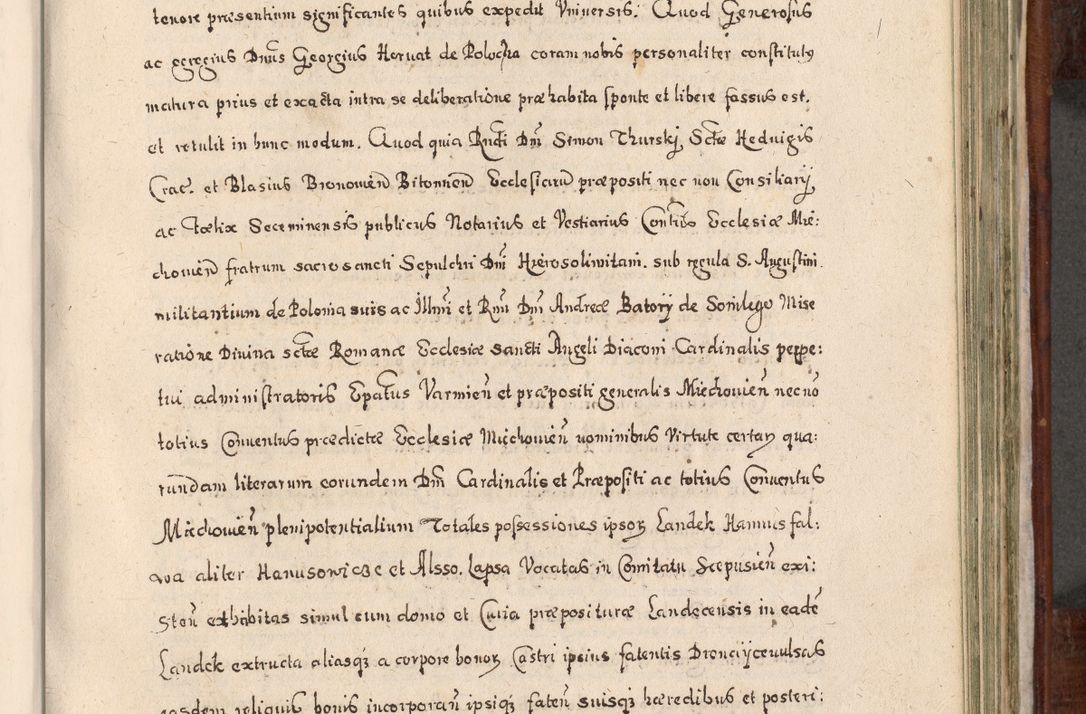 tenore præsentium significantes quibus expedit Vniversis. Quod Generosus
ac egregius Dnus Georgius Horuat de Plocha coram nobis personaliter constitutus
matura prius et exacta intra se deliberatione præhabita sponte et libere fassus est.
et retulit in hunc modum. Quod quia Rndi Dni Simon Thurskj Sctæ Hedvigis
Crac. et Blasius Bronowien Bitomien Ecclesiarum præpositi nec non Consiliarij
ac Fœlix Seceminensis publicus Notarius et Vestiarius Contius Ecclesiæ Mie:
chowien fratrum sacrosancti Sepulchri Dni Hierosolimitani sub regula S. Augustini
militantium de Polonia suis ac Illmi et Rmi Dni Andreæ Batorij de Somlego Mise
ratione Divina sctæ Romanæ Ecclesiæ sancti Angeli Diaconi Cardinalis perpe:
tui administratoris Epatus Varmien et præpositi generalis Miechowien necno
totius Conuentus prædictæ Ecclesiæ Miechowien nominibus Virtute certarum qua:
rundam literarum eorundem Dni Cardinalis et Præpositi ac totius Conuentus
Miechowien plenipotentialium Totales possessiones ipsorum Landek Hannus fal:
wa aliter Hanusowicze et Alsso. Lapsa Vocatas in Comitatu Scepusien exi:
sten exhabitas simul cum domo et Curia præposituræ Landecensis in eade
Landek extructa aliasq3 a corpore bonorum Castri ipsius fatentis
easdem reliquis bonis incorporan ipsiq3 faten suisq3 hæredibus et posteri: